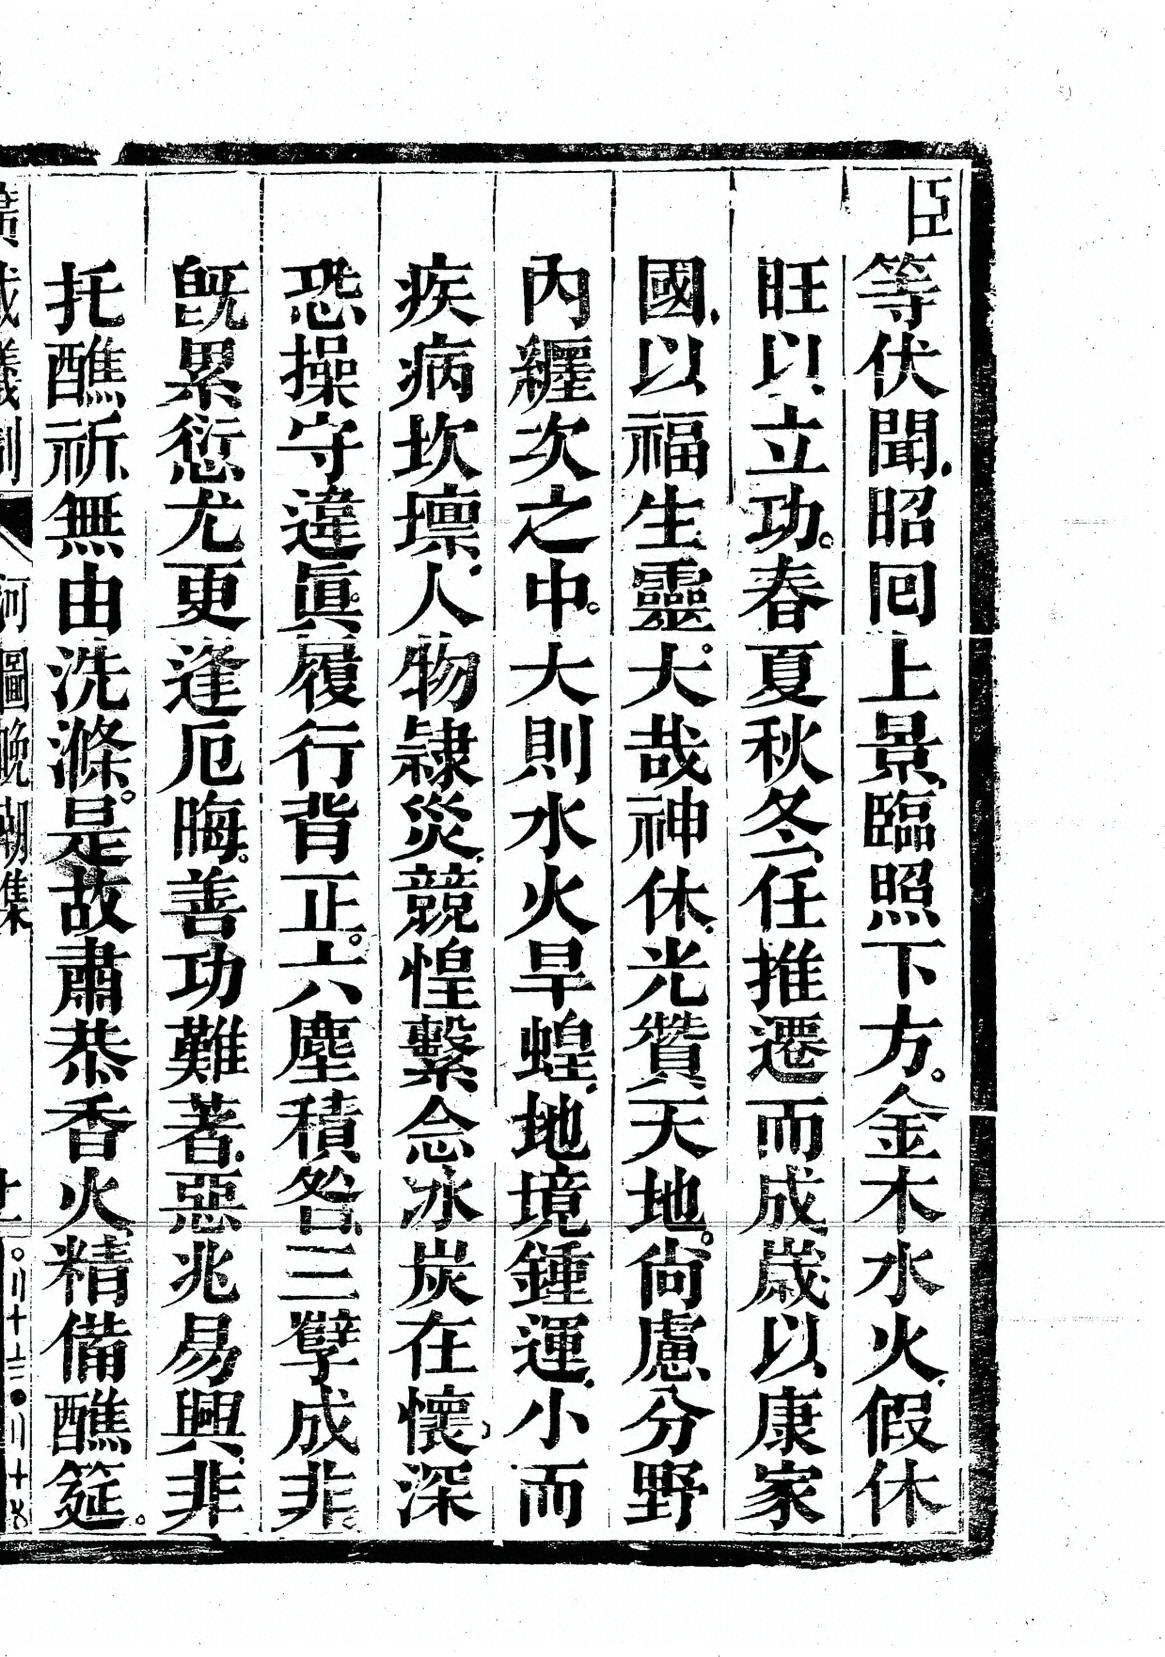 臣等伏聞、昭囘上景、臨照下方。金木水火、假休
旺以立功。春夏秋冬、任推遷而成歲、以康家
國、以福生靈。大哉神休、光贊天地。尙慮分野
內纏次之中。大則水火旱蝗、地境鍾運、小而
疾病坎壈、人物隷災、競惶繫念、冰炭在懷、深
恐操守違眞、履行背正。六塵積咎、三孼成非。
旣累愆尤、更逢厄晦。善功難著、惡兆易興、非
托醮祈、無由洗滌。是故肅恭香火、精備醮筵。
河圖晚朝集